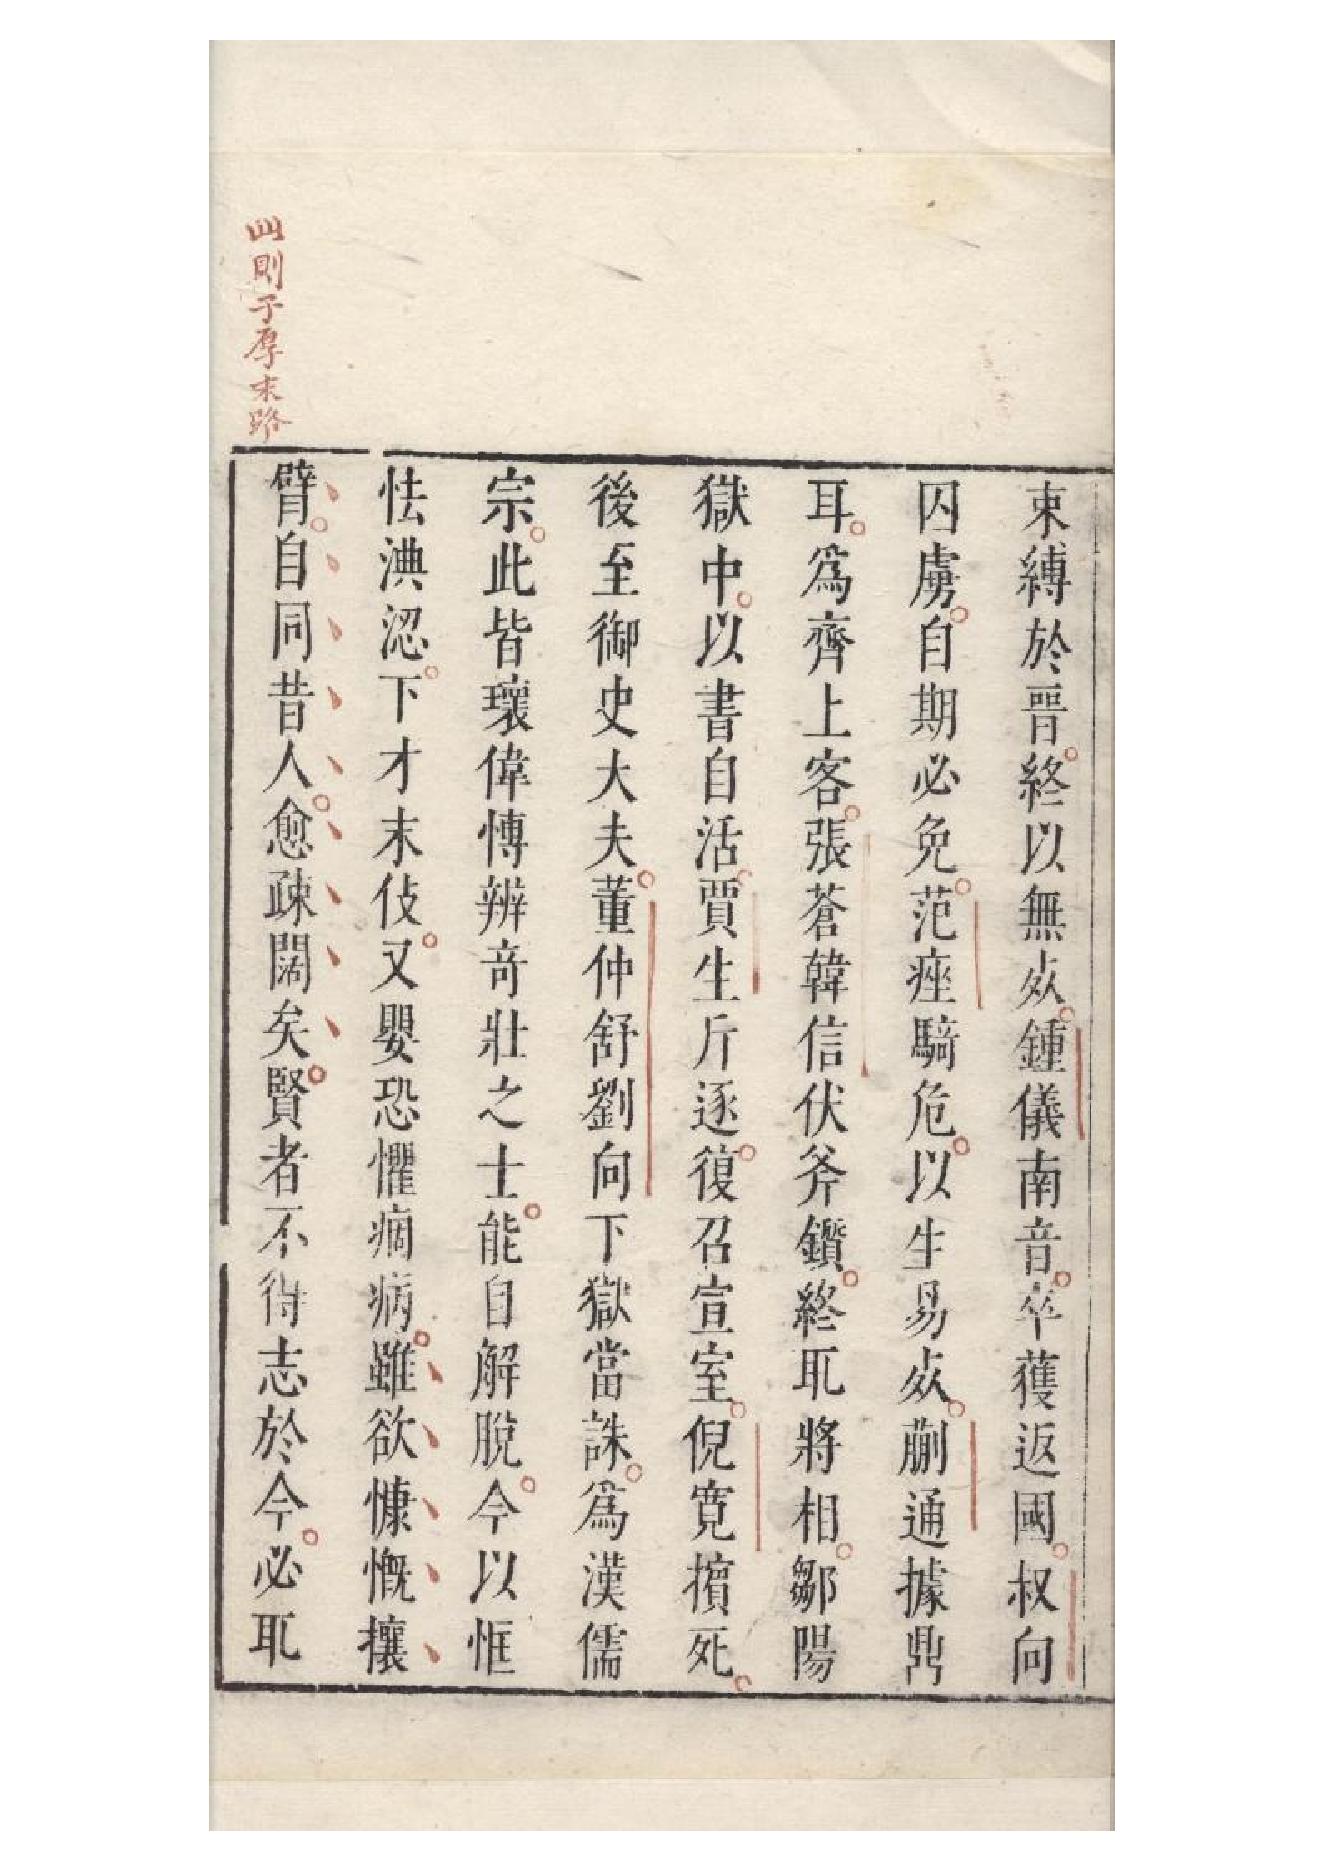 束縛於晉終以無㱙鍾儀南音卒獲返國叔向
囚虜自期必免范痤騎危以生易㱙蒯通據鼎
耳爲齊上客張蒼韓信伏斧鑕終取將相鄒陽
獄中以書自活賈生斥逐復召宣室倪寬擯死
後至御史大夫董仲舒劉向下獄當誅爲漢儒
宗此皆瓌偉慱辨奇壯之士能自解脫今以恇
怯淟涊下才末伎又嬰恐懼痼病雖欲慷慨攘
臂自同昔人愈疎闊矣賢者不得志於今必取
此則子厚末路